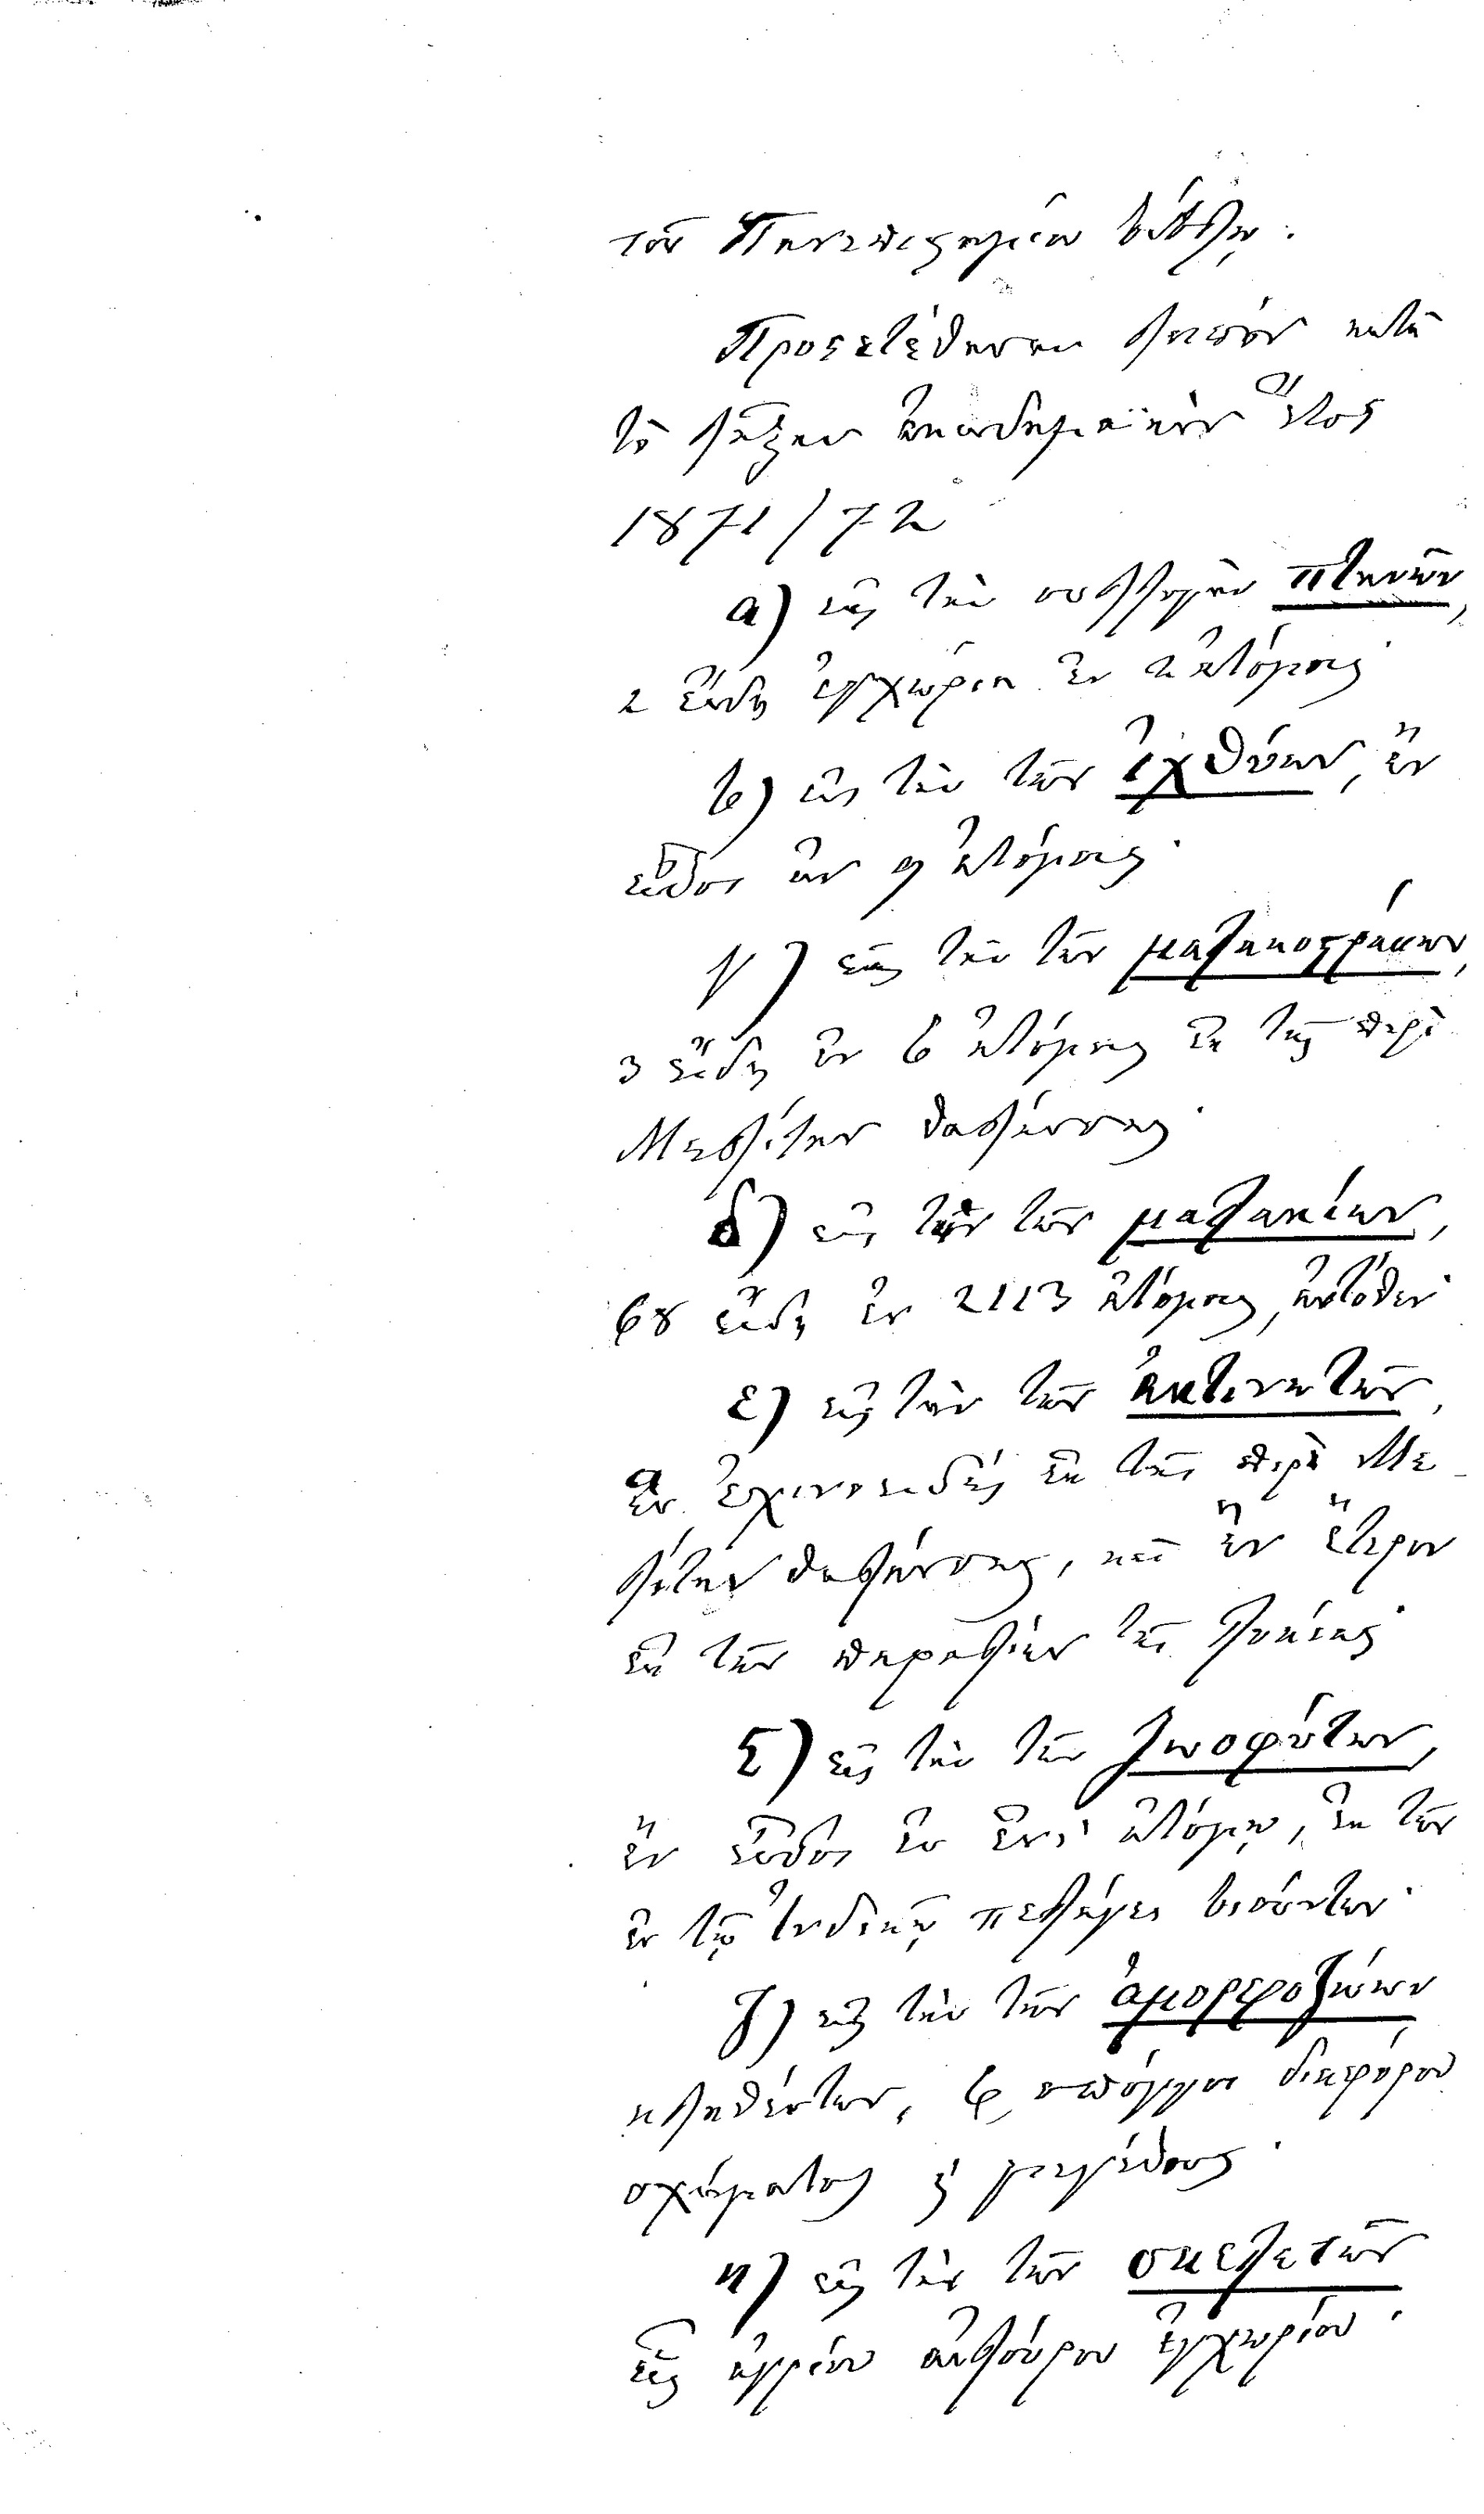 τοῦ Πανεπιστημίου βίβλῳ.
Προσετέθησαν λοιπὸν κατὰ
τὸ λῆξαν ἀκαδημαϊκὸν ἔτος
1871/72
α) εἰς τὴν συλλογὴν πτηνῶν,
2 εἴδη ἐγχώρια ἐν 2 ἀτόμοις·
β) εἰς τὴν τῶν ἰχθύων, ἓν
εἶδος ἐν 9 ἀτόμοις·
γ) εἰς τὴν τῶν μαλακοστράκων,
3 εἴδη ἐν 6 ἀτόμοις ἐκ τῆς περὶ
Μελίτην θαλάσσης·
δ) εἰς τὴν τῶν μαλακίων,
68 εἴδη ἐν 2113 ἀτόμοις, αὐτόθεν·
ε) εἰς τὴν τῶν ἀκτινωτῶν,
ἓν ἐχινοειδὲς ἐκ τῆς περὶ Με-
λίτην θαλάσσης, καὶ ἓν ἕτερον
ἐκ τῶν παραλίων τῆς Λυκίας·
ς) εἰς τὴν τῶν ζωοφύτων,
ἓν εἶδος ἐν ἑνὶ ἀτόμῳ, ἐκ τῶν
ἐν τῷ Ἰνδικῷ πελάγει βιούντων·
ζ) εἰς τὴν τῶν ἀμορφοζώων
κληθέντων, 6 σπόγγοι διαφόρου
σχήματος ἢ μεγέθους·
η) εἰς τὴν τῶν σκελετῶν
εἷς ἀγρίου αἰλούρου ἐγχωρίου·